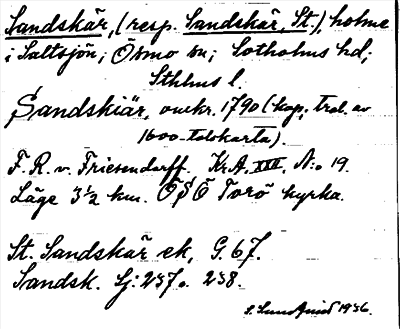 Sandskär, (resp. Sandskär, St.), holme
i Saltsjön; Ösmo sn; Sotholms hd;
Sthlms l.
Sandskiär, omkr. 1790 (kop. trol. av
1600-talskarta).
F. R. v. Friesendorff. Kr. A. XXII, N:o 19.
Läge 3½ km. ÖSÖ Torö kyrka.
St. Sandskär ek, G. 67.
Sandsk. Sj: 237 o. 238.
S. Sundquist 1936.